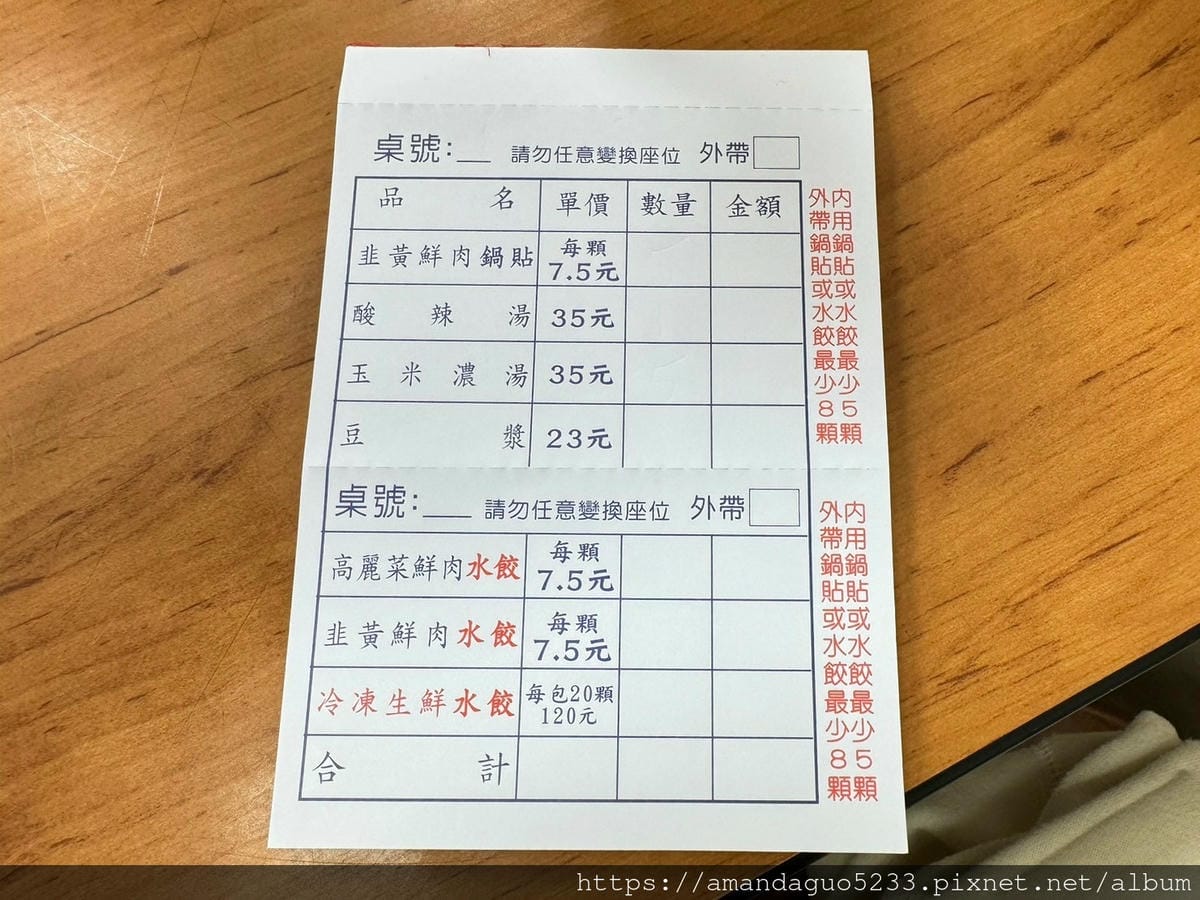 桌號:__ 請勿任意變換座位 外帶
品名 單價 數量 金額
韭黃鮮肉鍋貼 每顆 7.5元
酸辣湯 35元
玉米濃湯 35元
豆漿 23元
內用鍋貼或水餃最少5顆
外帶鍋貼或水餃最少8顆
桌號:__ 請勿任意變換座位 外帶
高麗菜鮮肉水餃 每顆 7.5元
韭黃鮮肉水餃 每顆 7.5元
冷凍生鮮水餃 每包20顆 120元
合計
內用鍋貼或水餃最少5顆
外帶鍋貼或水餃最少8顆
https://amandaguo5233.pixnet.net/album